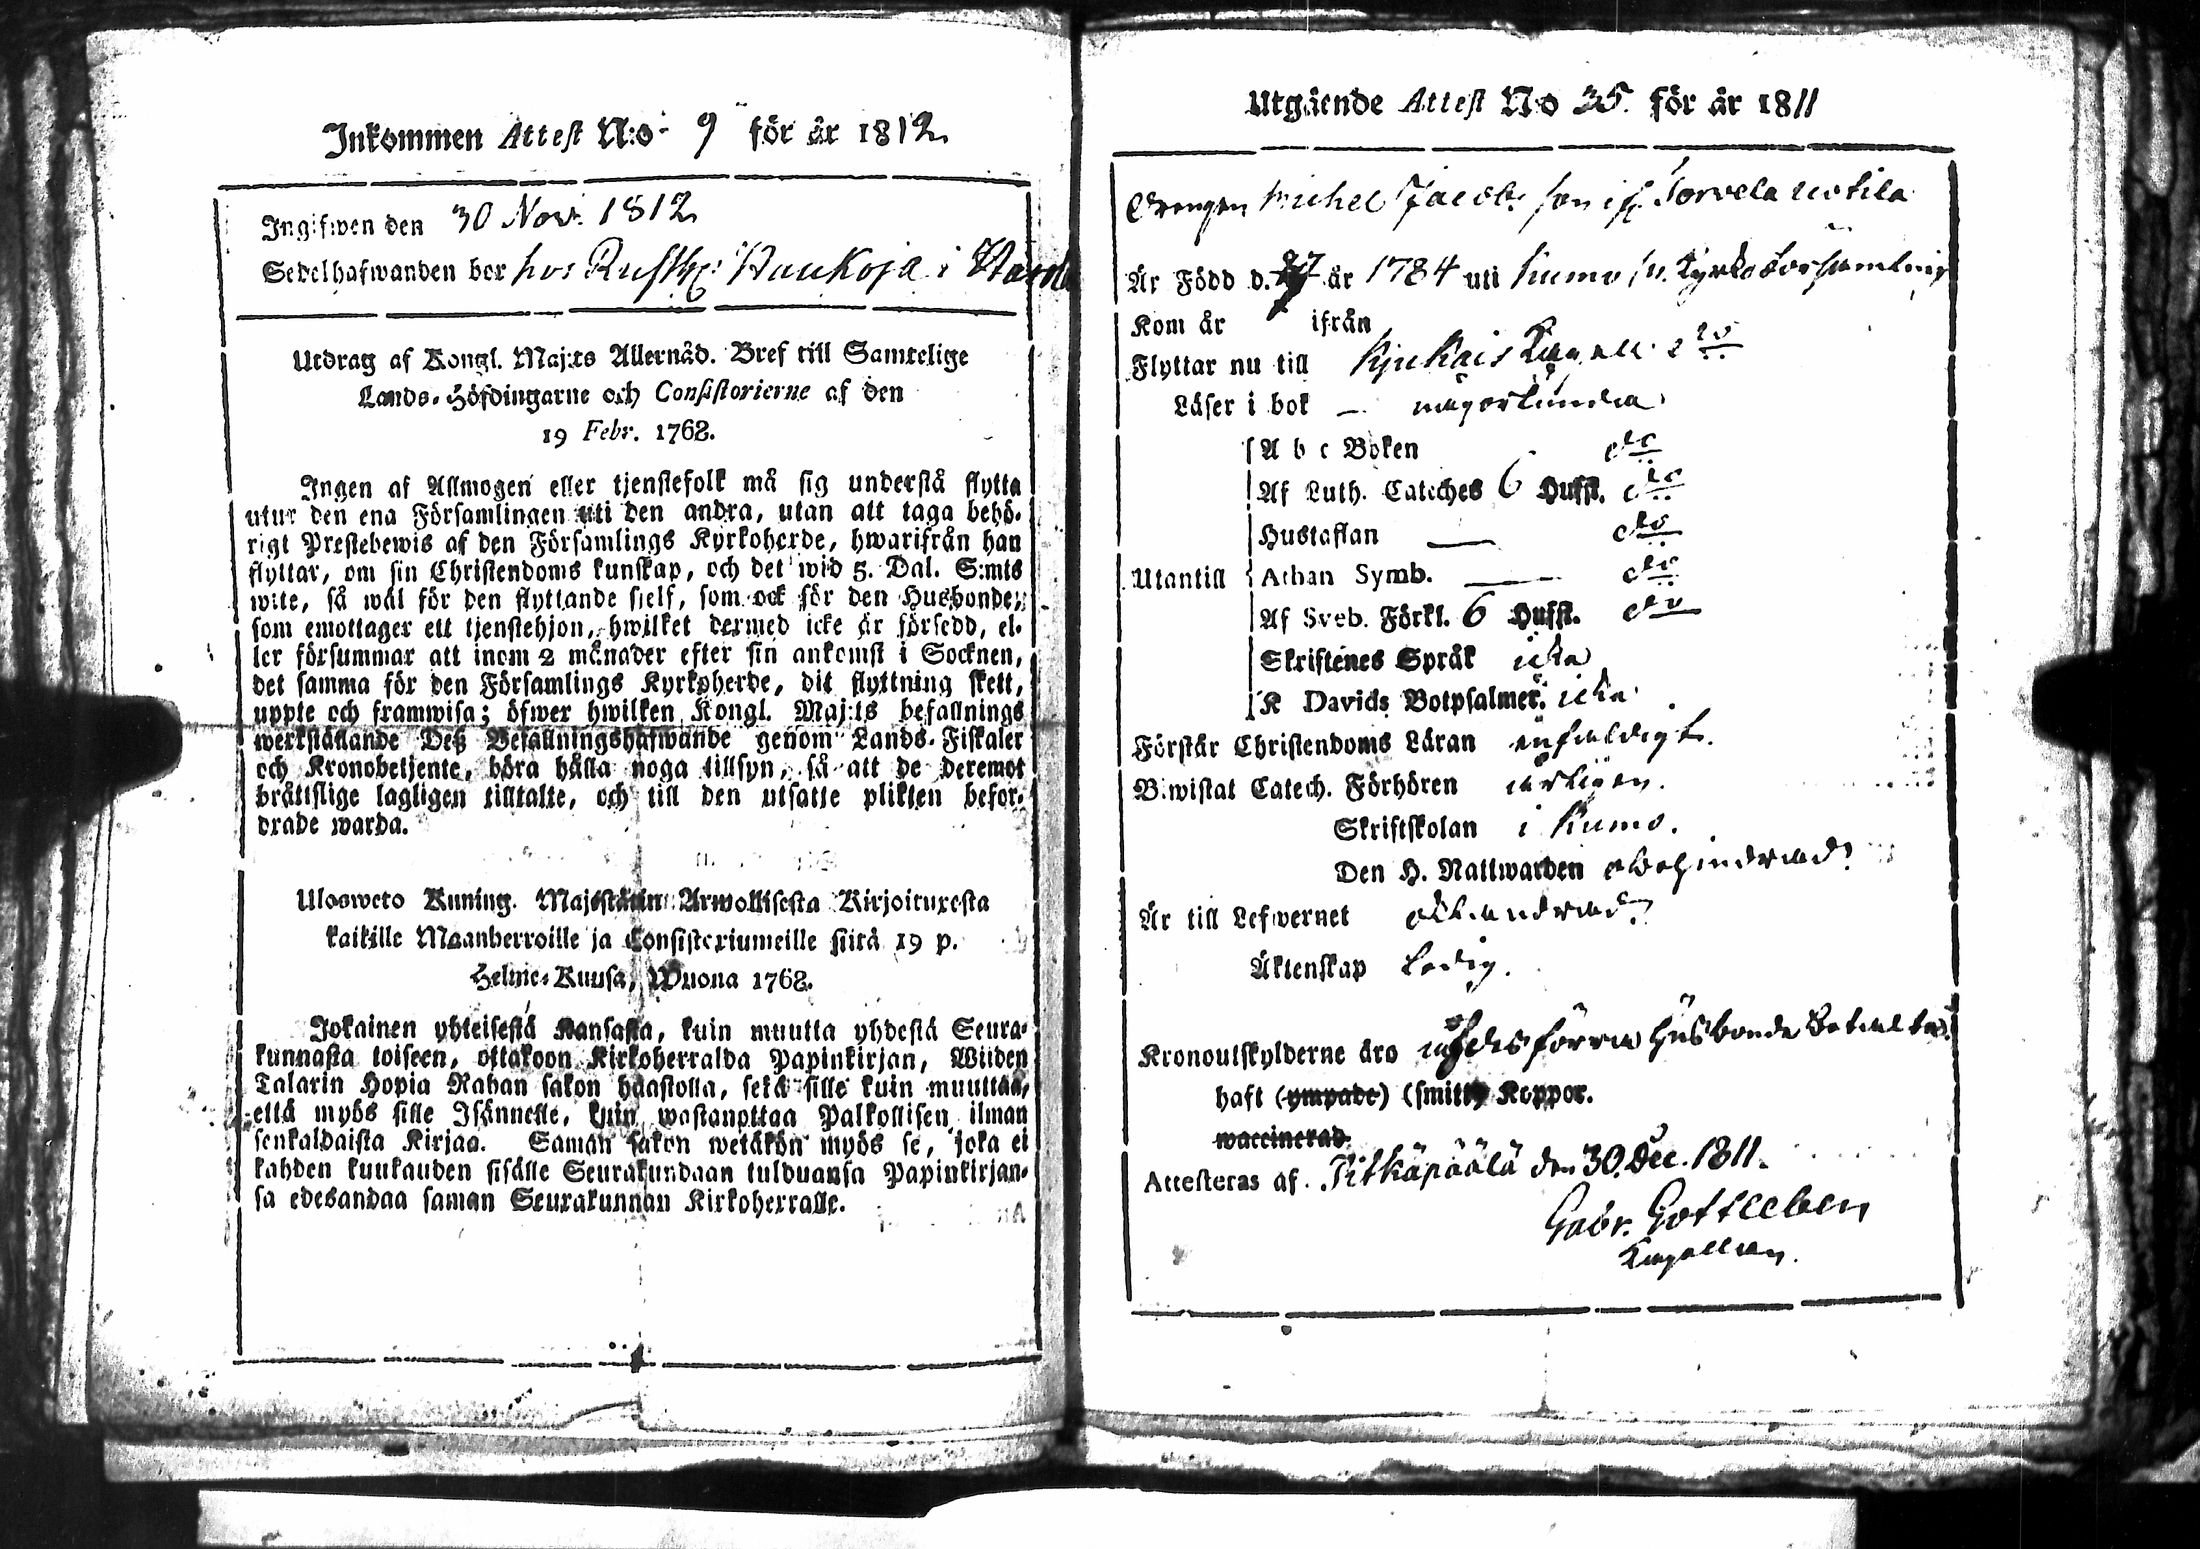 Inkommen Attest N:o 9 för år 1812
Ingifwen den 30 Nov. 1812
Sedelhafwanden bor hos Rusth: Haukoja i
Utdrag af Kongl. Maj:ts Allernåd. Bref till Samtelige
Lands-Höfdingarne och Consistorierne af den
19 Febr. 1768.
Ingen af Allmogen eller tjenstefolk må sig understå flytta
utur den ena Församlingen uti den andra, utan att taga behö-
rigt Prestebewis af den Församlings Kyrkoherde, hwarifrån han
flyttar, om sin Christendoms kunskap, och det wid 5. Dal. S:mts
wite, så wäl för den flyttande sjelf, som ock för den Husbonde,
som emottager ett tjenstehjon, hwilket dermed icke är försedd, el-
ler försummar att inom 2 månader efter sin ankomst i Socknen,
det samma för den Församlings Kyrkoherde, dit flyttning skett,
uppte och framwisa; öfwer hwilken Kongl. Maj:ts befallnings
werkställande Deß Befallningshafwande genom Lands-Fiskaler
och Kronobetjente, böra hålla noga tillsyn, så att de deremot
bråttslige lagligen tilltalte, och till den utsatte plikten befor-
drade warda.
Ulosweto Kuning. Majestätin Armollisesta Kirjoituxesta
kaikille Maanherroille ja Consistoriumeille siitä 19 p.
Helme-Kuusa, Wuona 1768.
Jokainen yhteisestä Kansasta, kuin muutta yhdestä Seura-
kunnasta toiseen, ottakoon Kirkoherralda Papinkirjan, Wiiden
Talarin Hopia Rahan sakon haastolla, sekä sille kuin muuttaa,
että myös sille Isännelle, kuin wastanottaa Palkollisen ilman
senkaldaista Kirjaa. Saman sakon wetäkön myös se, joka ei
kahden kuukauden sisälle Seurakundaan tulduansa Papinkirjan-
sa edesandaa saman Seurakunnan Kirkoherralle.
Utgående Attest No 35. för år 1811
Drengen Michel Jacobs son if: Sorvela Uotila
Är Född d. 27 år 1784 uti Kumo Kyrko församling
Kom år ifrån
Flyttar nu till Kjukais Kapell
Läser i bok — någorlunda
A b c Boken do
Af Luth. Cateches 6 Hufst. do
Hustaflan — do
Utantill Athan Symb. — do
Af Sveb. Förkl. 6 Hufst. do
Skriftenes Språk icke
K Davids Botpsalmer. icke
Förstår Christendoms Läran enfaldigt.
Biwistat Catech. Förhören årligen.
Skriftskolan i Kumo.
Den H. Nattwarden obehindrad
Är till Lefwernet oklandrad
Äktenskap Ledig.
Kronoutskylderne äro uti des förra Husbonde betalta
haft (ympade) (smitt) Koppor.
waccinerad.
Attesteras af Pitkäpäälä den 30. Dec. 1811.
Gabr. Gottleben
Kapellan.